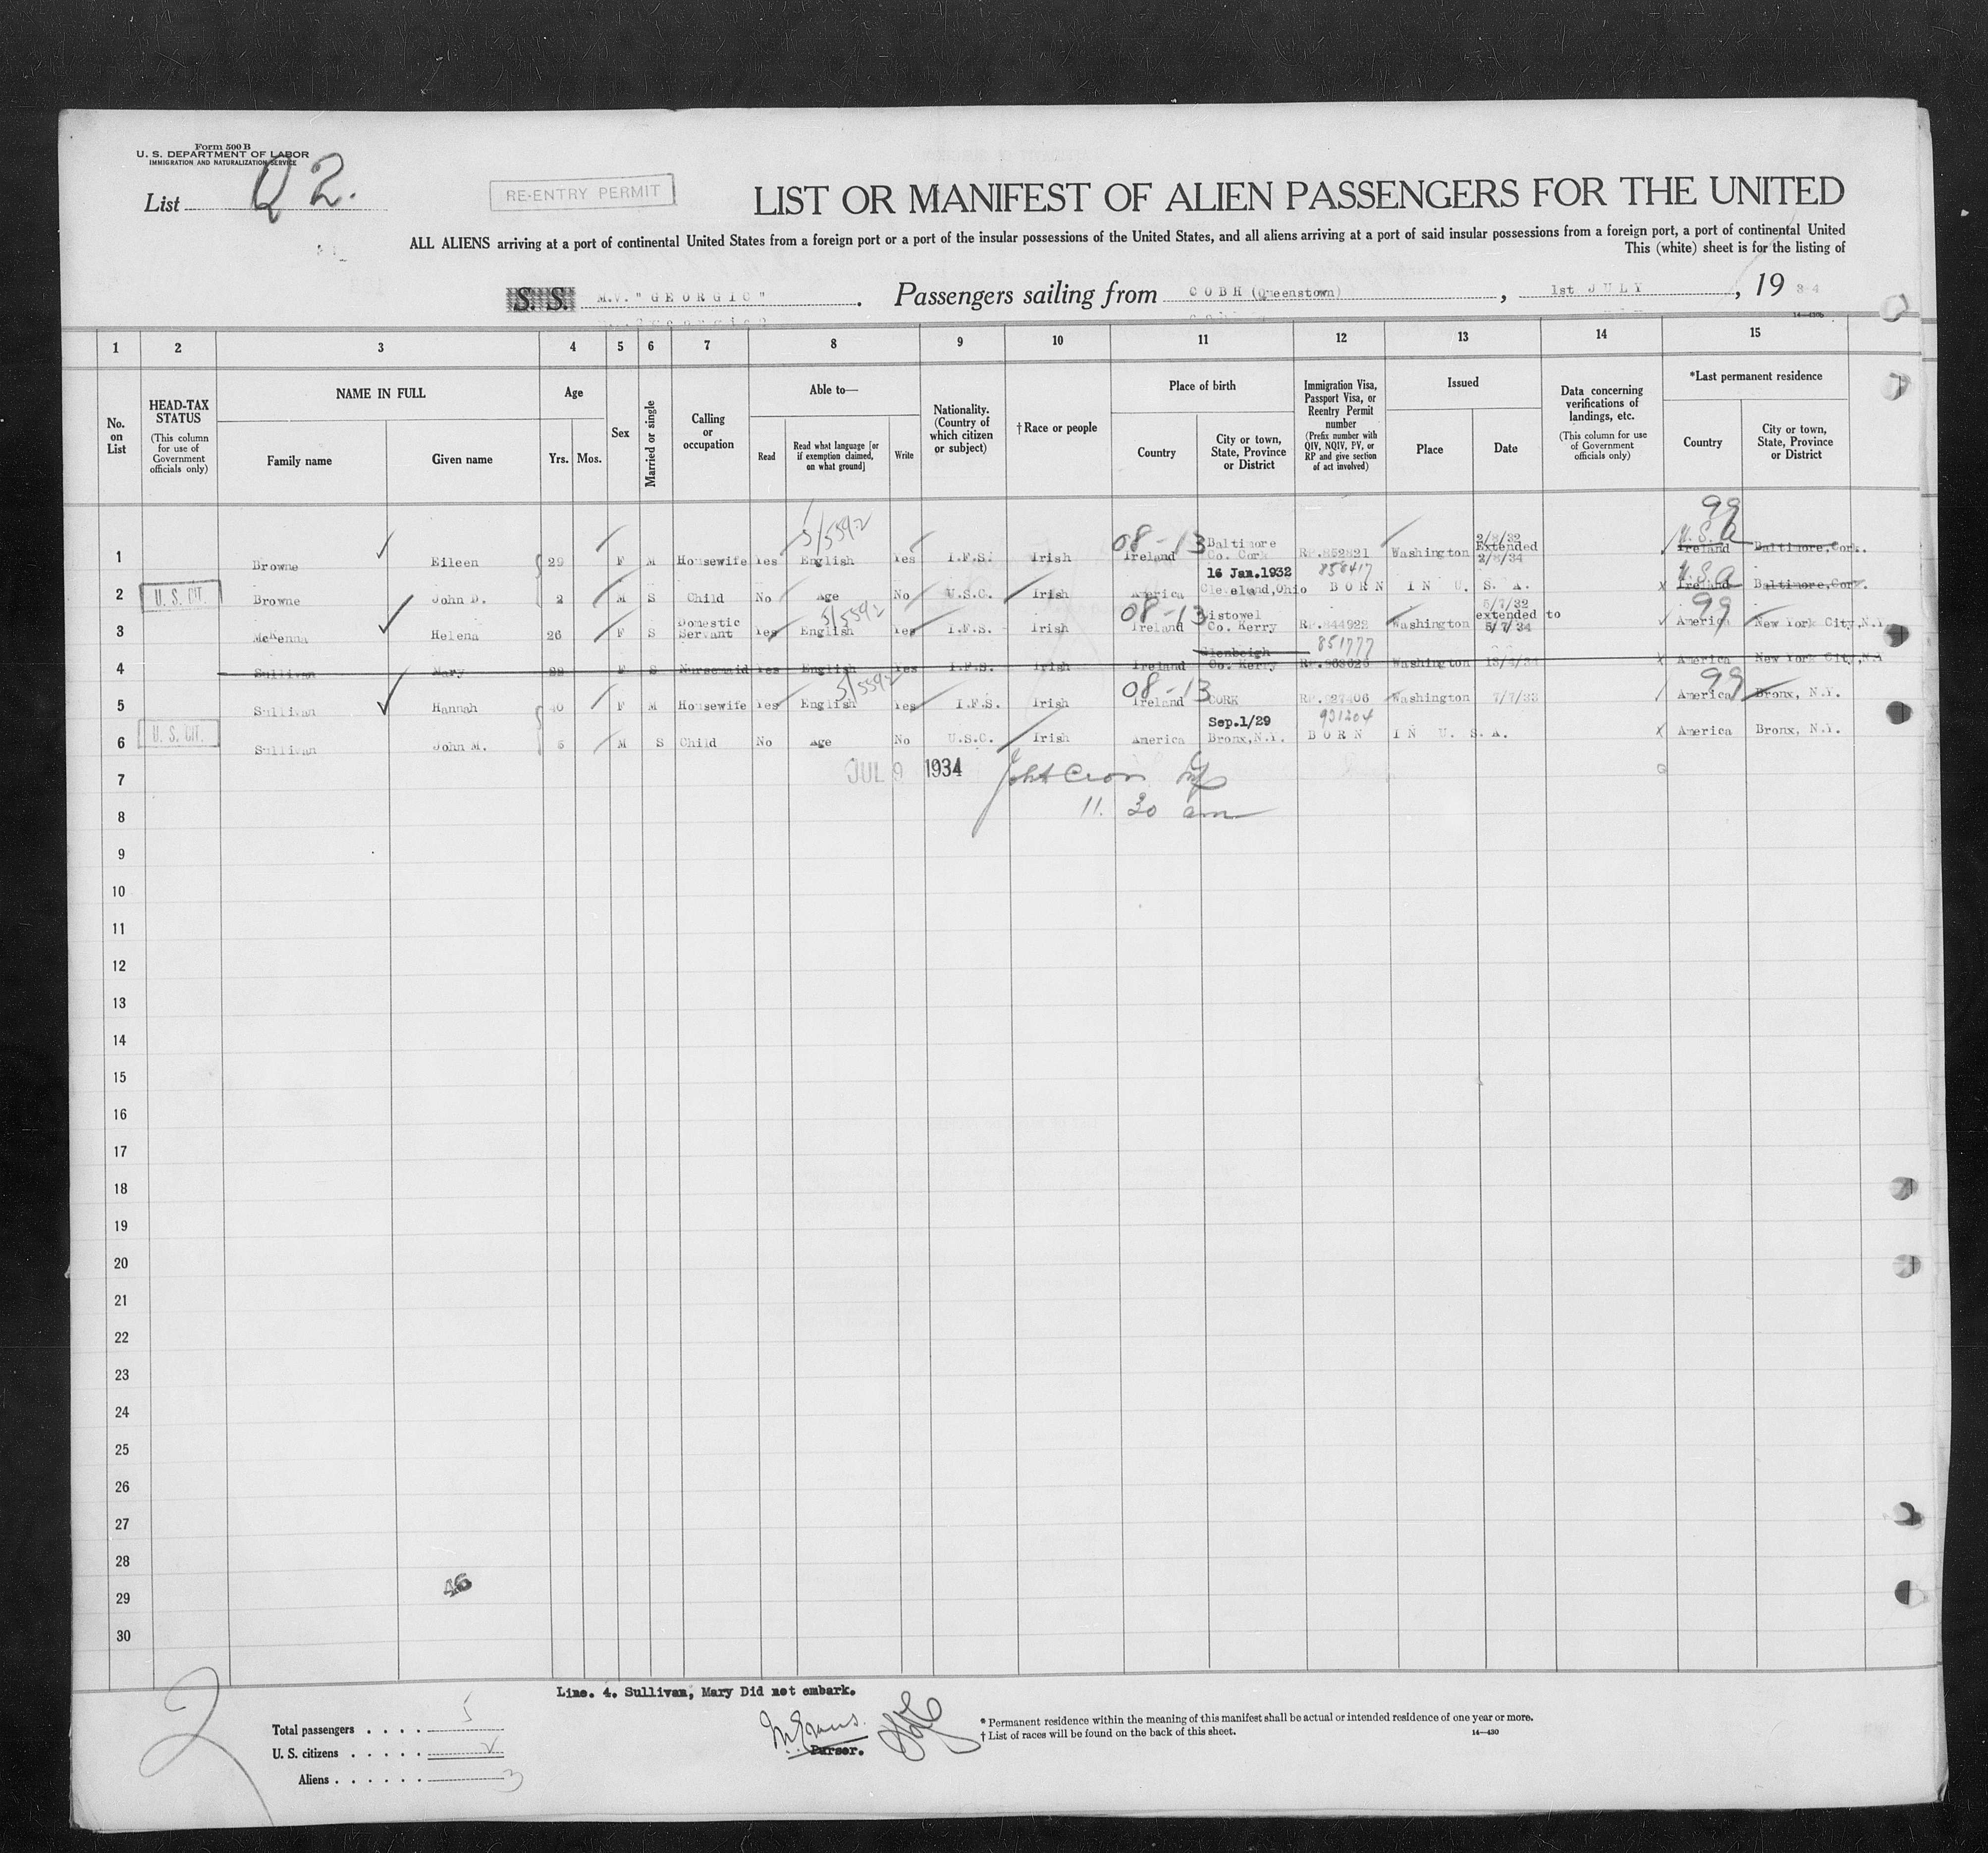 Form 500 B
U. S. DEPARTMENT OF LABOR
IMMIGRATION AND NATURALIZATION SERVICE
List Q 2.
RE-ENTRY PERMIT
LIST OR MANIFEST OF ALIEN PASSENGERS FOR THE UNITED
ALL ALIENS arriving at a port of continental United States from a foreign port or a port of the insular possessions of the United States, and all aliens arriving at a port of said insular possessions from a foreign port, a port of continental United
This (white) sheet is for the listing of
S. S. M.V. "GEORGIC". Passengers sailing from COBH (Queenstown), 1st JULY, 19 34
1 2 3 4 5 6 7 8 9 10 11 12 13 14 15
No. on List
HEAD-TAX STATUS
(This column for use of Government officials only)
NAME IN FULL
Family name Given name
Age
Yrs. Mos.
Sex
Married or single
Calling or occupation
Able to—
Read Read what language [or if exemption claimed, on what ground] Write
Nationality. (Country of which citizen or subject)
† Race or people
Place of birth
Country City or town, State, Province or District
Immigration Visa, Passport Visa, or Reentry Permit number
(Prefix number with QIV, NQIV, PV, or RP and give section of act involved)
Issued
Place Date
Data concerning verifications of landings, etc.
(This column for use of Government officials only)
*Last permanent residence
Country City or town, State, Province or District
5/5592 99
08-13 Baltimore 2/8/32 U.S.A
1 Browne Eileen 29 F M Housewife Yes English Yes I.F.S. Irish Ireland Co. Cork RP.852821 Washington Extended 2/8/34 Ireland Baltimore, Cork.
16 Jan.1932 858417 U.S.A
2 U. S. CIT. Browne John D. 2 M S Child No Age No U.S.C. Irish America Cleveland, Ohio BORN IN U. S. A. Ireland Baltimore, Cork.
5/5592 08-13 Listowel 5/7/32 99
3 McKenna Helena 26 F S Domestic Servant Yes English Yes I.F.S. Irish Ireland Co. Kerry RP.844922 Washington extended to 5/7/34 America New York City, N.Y.
Glenbeigh 851777
4 Sullivan Mary 28 F S Nursemaid Yes English Yes I.F.S. Irish Ireland Co. Kerry Washington America New York City, N.Y.
5/5592 08-13 99
5 Sullivan Hannah 40 F M Housewife Yes English Yes I.F.S. Irish Ireland CORK RP.927406 Washington 7/7/33 America Bronx, N.Y.
Sep.1/29 931204
6 U. S. CIT. Sullivan John M. 5 M S Child No Age No U.S.C. Irish America Bronx, N.Y. BORN IN U. S. A. America Bronx, N.Y.
7 JUL 9 1934
8 11. 30 am
9
10
11
12
13
14
15
16
17
18
19
20
21
22
23
24
25
26
27
28
29 46
30
2
Line. 4. Sullivan, Mary Did not embark.
Total passengers . . . . 5
U. S. citizens . . . . . 2
Aliens . . . . . . 3
M. Evans.
Purser.
* Permanent residence within the meaning of this manifest shall be actual or intended residence of one year or more.
† List of races will be found on the back of this sheet.
14—430